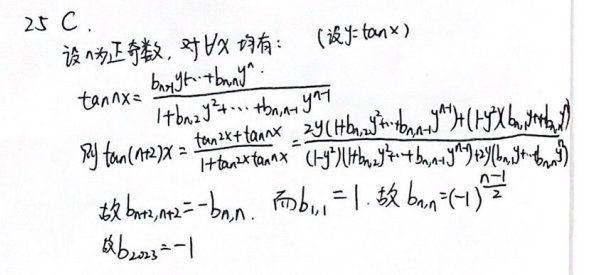 25 C.
设n为正奇数, 对∀x 均有: (设y=tanx)
tan nx = (b_{n,1}y+…+b_{n,n}y^n) / (1+b_{n,2}y²+…+b_{n,n-1}y^{n-1})
则 tan(n+2)x = (tan2x+tannx) / (1+tan2x tannx) = (2y(1+b_{n,2}y²+…+b_{n,n-1}y^{n-1})+(1-y²)(b_{n,1}y+…+b_{n,n}y^n)) / ((1-y²)(1+b_{n,2}y²+…+b_{n,n-1}y^{n-1})+2y(b_{n,1}y+…b_{n,n}y^n))
故 b_{n+2,n+2}=-b_{n,n}. 而b_{1,1}=1. 故 b_{n,n}=(-1)^{\frac{n-1}{2}}
故b_{2023}=-1